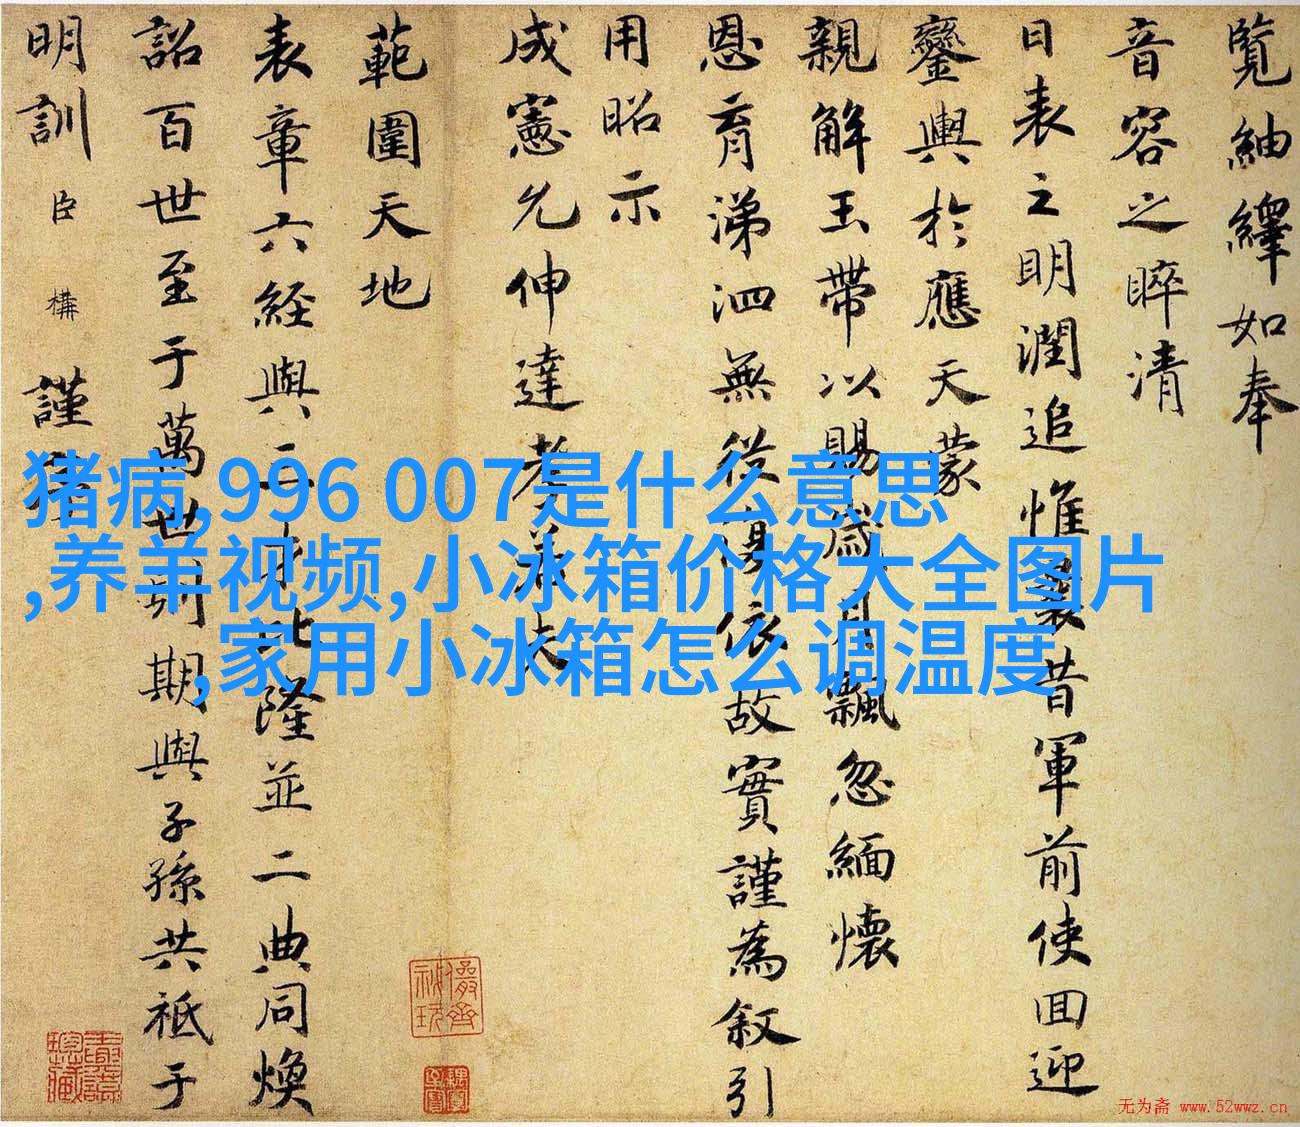 覽紬繹如奉
音容之睟清
日表之明潤追惟曩昔軍前使回迎
鑾輿於應天蒙
親解玉帶以賜歲月飄忽緬懷
恩育涕泗無從依故實謹為叙引
用昭示
成憲允伸達孝若夫
範圍天地
表章六経與三才比隆並二典同煥
詔百世至于萬世則期與子孫共祗于
明訓臣構謹
猪病,996 007是什么意思
,养羊视频,小冰箱价格大全图片
,家用小冰箱怎么调温度
无为斋 www.52wwz.cn